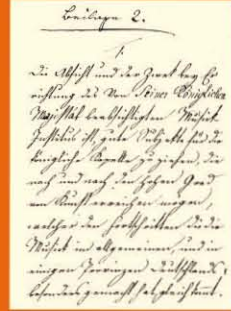 Beilage 2.
1.
Die Absicht und der Zweck bey Er
richtung des von Seiner Königlichen
Majestät beabsichtigten Musick
Instituts ist, gute Subjekte für die
Königliche Kapelle zu ziehen, die
nach und nach den hohen Grad
von Kunst erreichen mögen,
welcher den Fortschritten die die
Musick im allgemeinen, und in
einigen Provinzen Deutschlands
besonders gemacht hat, gleichkömmt.